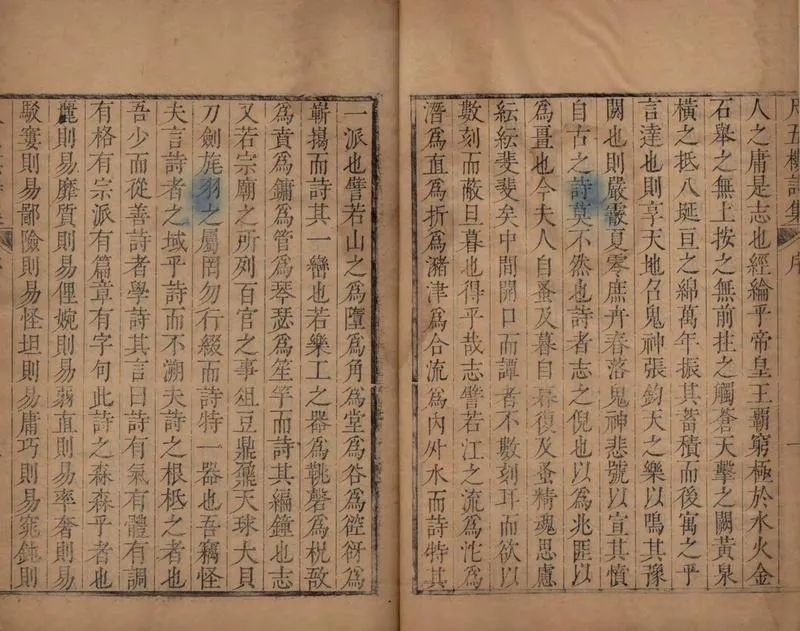 尺五樓詩集 序 一
人之庸是志也經綸乎帝皇王霸窮極於水火金
石舉之無上按之無前拄之觸蒼天擊之闕黃泉
橫之抵八埏亘之綿萬年振其蓄積而後寓之乎
言達也則享天地召鬼神張鈞天之樂以鳴其豫
闕也則嚴霰夏零庶卉春落鬼神悲號以宣其憤
自古之詩莫不然也詩者志之倪也以爲兆匪以
爲畺也今夫人自蚤及暮自暮復及蚤精魂思慮
紜紜斐斐矣中間開口而譚者不數刻耳而欲以
數刻而蔽旦暮也得乎哉志譬若江之流爲沱爲
潛爲直爲折爲瀦津爲合流爲內外水而詩特其
一派也譬若山之爲墮爲角爲堂爲谷爲硿谺爲
嶄揚而詩其一巒也若樂工之器爲鞉磬爲柷敔
爲賁爲鏞爲管爲琴瑟爲笙竽而詩其編鐘也志
又若宗廟之所列百官之事俎豆鼎鼐天球大貝
刀劍旄羽之屬罔勿行綴而詩特一器也吾竊怪
夫言詩者之域乎詩而不溯夫詩之根柢之者也
吾少而從善詩者學詩其言曰詩有氣有體有調
有格有宗派有篇章有字句此詩之森森乎者也
麗則易靡質則易俚婉則易弱直則易率奢則易
駁寠則易鄙險則易怪坦則易庸巧則易窕鈍則